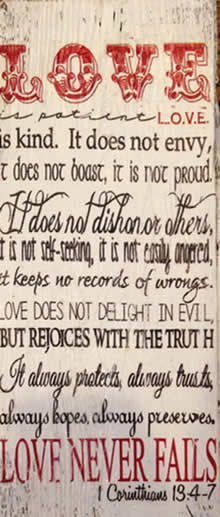 LOVE
is patient L.O.V.E.
is kind. It does not envy,
it does not boast, it is not proud.
It does not dishonor others,
it is not self-seeking, it is not easily angered,
it keeps no records of wrongs.
LOVE DOES NOT DELIGHT IN EVIL,
BUT REJOICES WITH THE TRUTH
It always protects, always trusts,
always hopes, always preserves.
LOVE NEVER FAILS
1 Corinthians 13:4-7